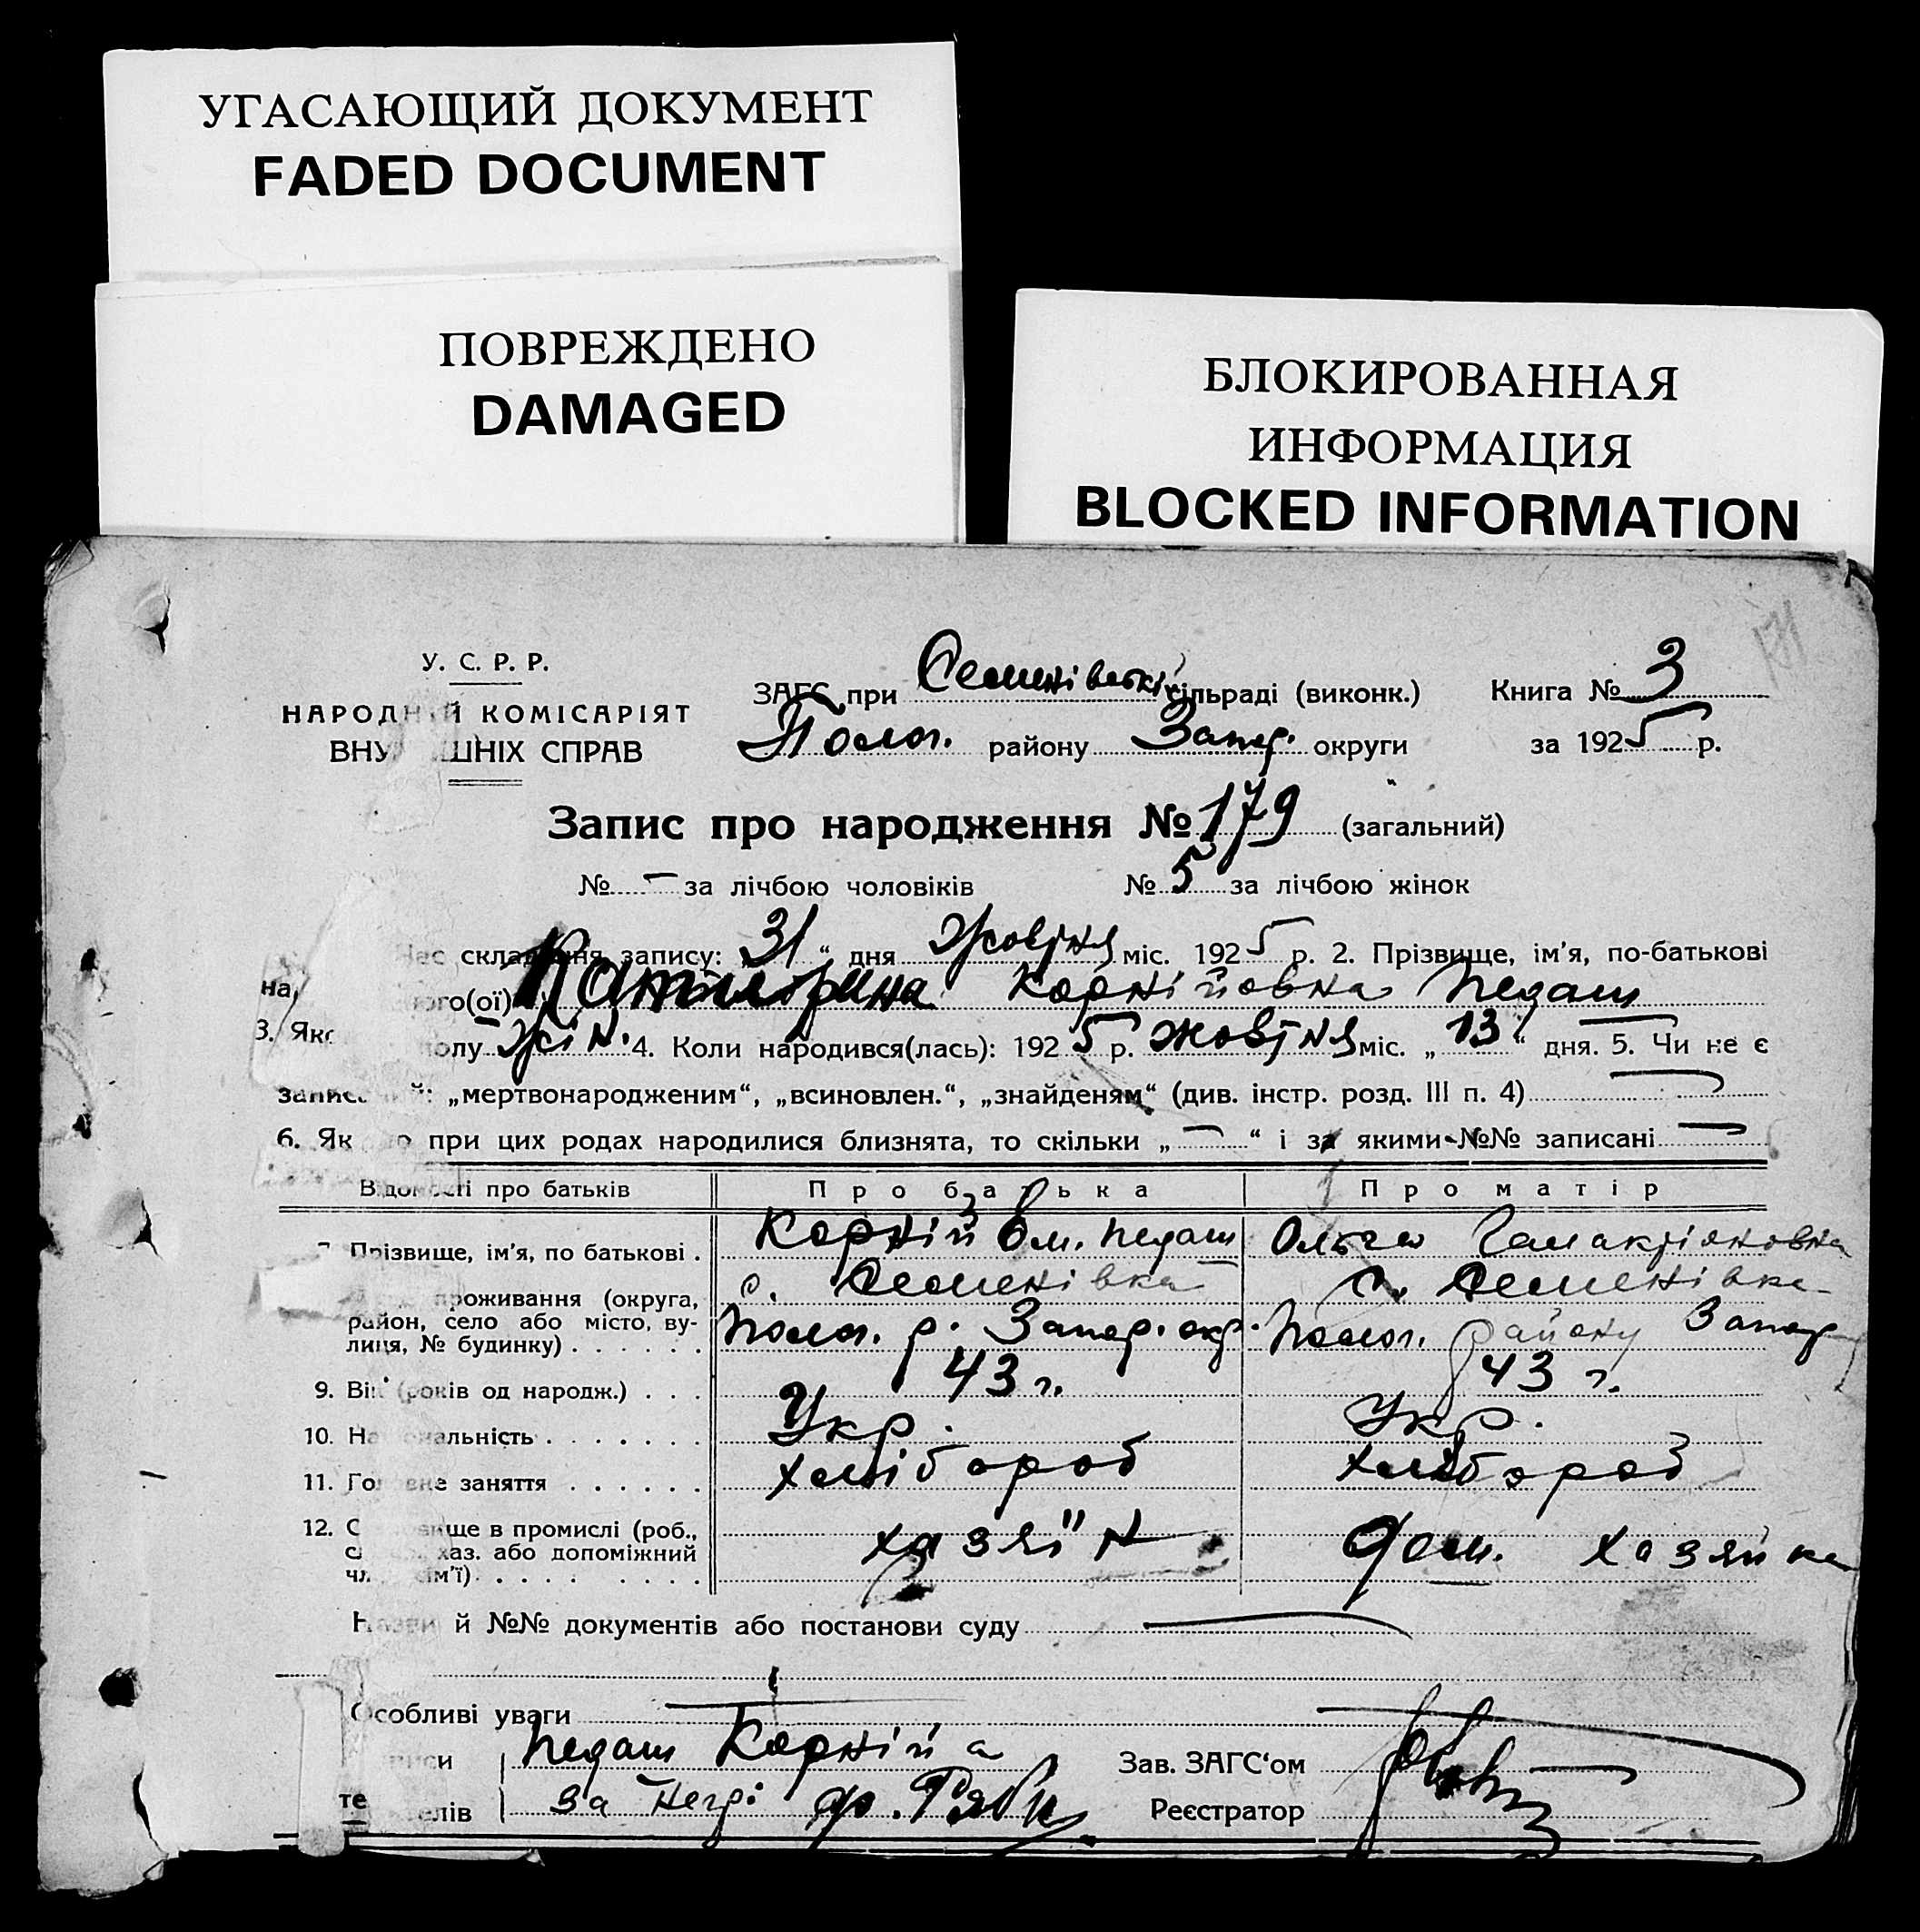 УГАСАЮЩИЙ ДОКУМЕНТ
FADED DOCUMENT
ПОВРЕЖДЕНО
DAMAGED
БЛОКИРОВАННАЯ
ИНФОРМАЦИЯ
BLOCKED INFORMATION
У. С. Р. Р.
НАРОДНИЙ КОМІСАРІЯТ
ВНУ ШНІХ СПРАВ
ЗАГС при Семенівській сільраді (виконк.) Книга № 3
Полог. району Запор. округи за 1925 р.
Запис про народження № 179 (загальний)
№ – за лічбою чоловіків № 5 за лічбою жінок
час складання запису: „31“ дня Жовтня міс. 1925 р. 2. Прізвище, ім'я, по-батькові
на ного(ої) Катерина Корнійовна Педаш
3. Яко полу жін. 4. Коли народився(лась): 1925 р. жовтня міс. „13“ дня. 5. Чи не є
запис ий: „мертвонародженим“, „всиновлен.“, „знайденям“ (див. інстр. розд. III п. 4) —
6. Як о при цих родах народилися близнята, то скільки „—“ і за якими №№ записані —
Відомості про батьків Про батька Про матір
7. Прізвище, ім'я, по батькові . Корній Ом. Педаш Ольга
проживання (округа, с. Семенівка с. Семенівка
район, село або місто, ву-
лиця, № будинку) . . . . . . Полог. р. Запор. окр. Полог. району Запор
9. Вік (років од народж.) . . . 43 г. 43 г.
10. Національність . . . . . . . Укр. Укр.
11. Головне заняття . . . . . . хлібороб хлібороб
12. С ище в промислі (роб.,
хаз. або допоміжний хазяїн дом. хазяйка
чл сім'ї) . . . . . . . .
Назви й №№ документів або постанови суду —
Особливі уваги —
иси Педаш Корній а Зав. ЗАГС'ом
те елів за Негр. Реєстратор